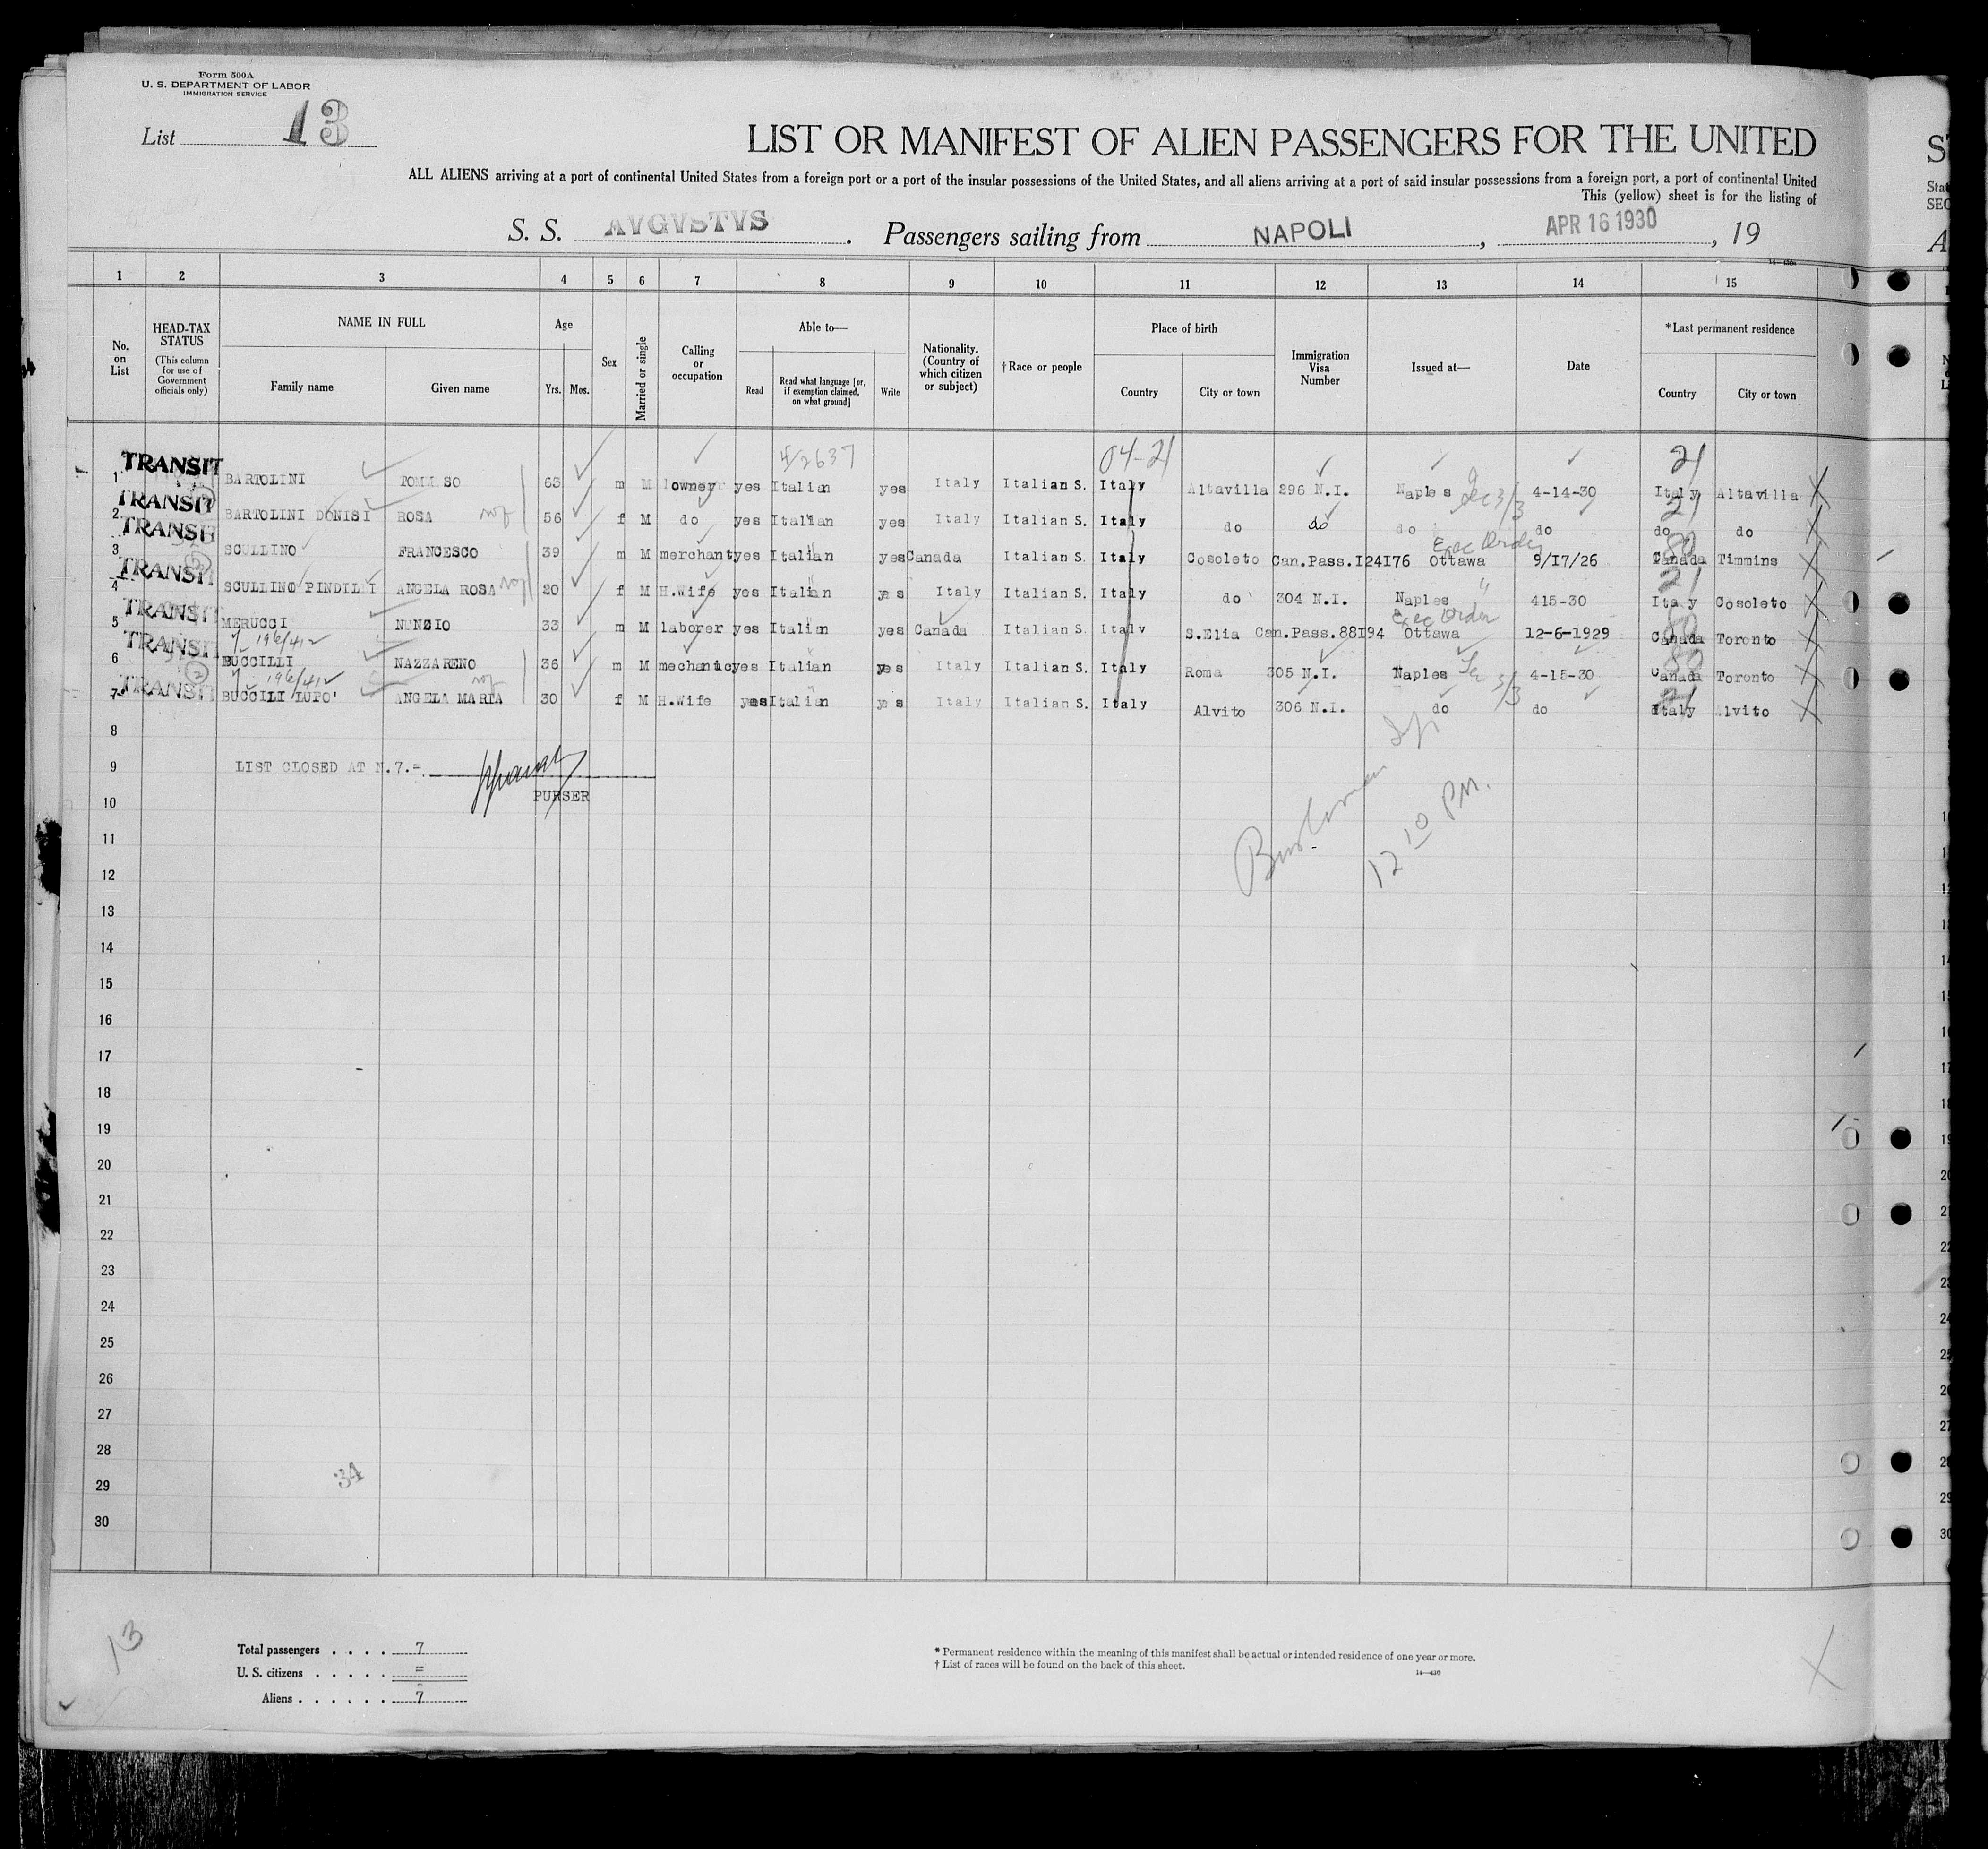 Form 500A
U. S. DEPARTMENT OF LABOR
IMMIGRATION SERVICE
List 13
LIST OR MANIFEST OF ALIEN PASSENGERS FOR THE UNITED
ALL ALIENS arriving at a port of continental United States from a foreign port or a port of the insular possessions of the United States, and all aliens arriving at a port of said insular possessions from a foreign port, a port of continental United
This (yellow) sheet is for the listing of
S. S. AVGVSTVS. Passengers sailing from NAPOLI, APR 16 1930, 19
1 2 3 4 5 6 7 8 9 10 11 12 13 14 15
No. on List
HEAD-TAX STATUS (This column for use of Government officials only)
NAME IN FULL
Family name Given name
Age
Yrs. Mos.
Sex
Married or single
Calling or occupation
Able to—
Read
Read what language [or, if exemption claimed, on what ground]
Write
Nationality. (Country of which citizen or subject)
†Race or people
Place of birth
Country City or town
Immigration Visa Number
Issued at—
Date
*Last permanent residence
Country City or town
4/2637 04-21 21
TRANSIT
1 BARTOLINI TOMM SO 63 m M owner yes Italian yes Italy Italian S. Italy Altavilla 296 N.I. Naples 3/3 4-14-30 Italy Altavilla
TRANSIT 21
2 BARTOLINI DONISI ROSA 56 f M do yes Italian yes Italy Italian S. Italy do do do do do do
TRANSIT Exec Order 80
3 SCULLINO FRANCESCO 39 m M merchant yes Italian yes Canada Italian S. Italy Cosoleto Can.Pass.I24I76 Ottawa 9/17/26 Canada Timmins
TRANSIT 21
4 SCULLINO PINDILLI ANGELA ROSA 20 f M H.Wife yes Italian yes Italy Italian S. Italy do 304 N.I. Naples " 415-30 Italy Cosoleto
TRANSIT Exec Order 80
5 MERUCCI NUNZIO 33 m M laborer yes Italian yes Canada Italian S. Italy S.Elia Can.Pass.88I94 Ottawa 12-6-1929 Canada Toronto
TRANSIT 196/412 80
6 BUCCILLI NAZZARENO 36 m M mechanic yes Italian yes Italy Italian S. Italy Roma 305 N.I. Naples 3/3 4-15-30 Canada Toronto
TRANSIT 196/412 21
7 BUCCILI LUPO' ANGELA MARIA 30 f M H.Wife yes Italian yes Italy Italian S. Italy Alvito 306 N.I. do do Italy Alvito
8
9 LIST CLOSED AT N.7.=
PURSER
10
11
12 12 10 P.M.
13
14
15
16
17
18
19
20
21
22
23
24
25
26
27
28
34
29
30
13
Total passengers . . . . 7
U. S. citizens . . . . . =
Aliens . . . . . . 7
* Permanent residence within the meaning of this manifest shall be actual or intended residence of one year or more.
† List of races will be found on the back of this sheet.
14—430